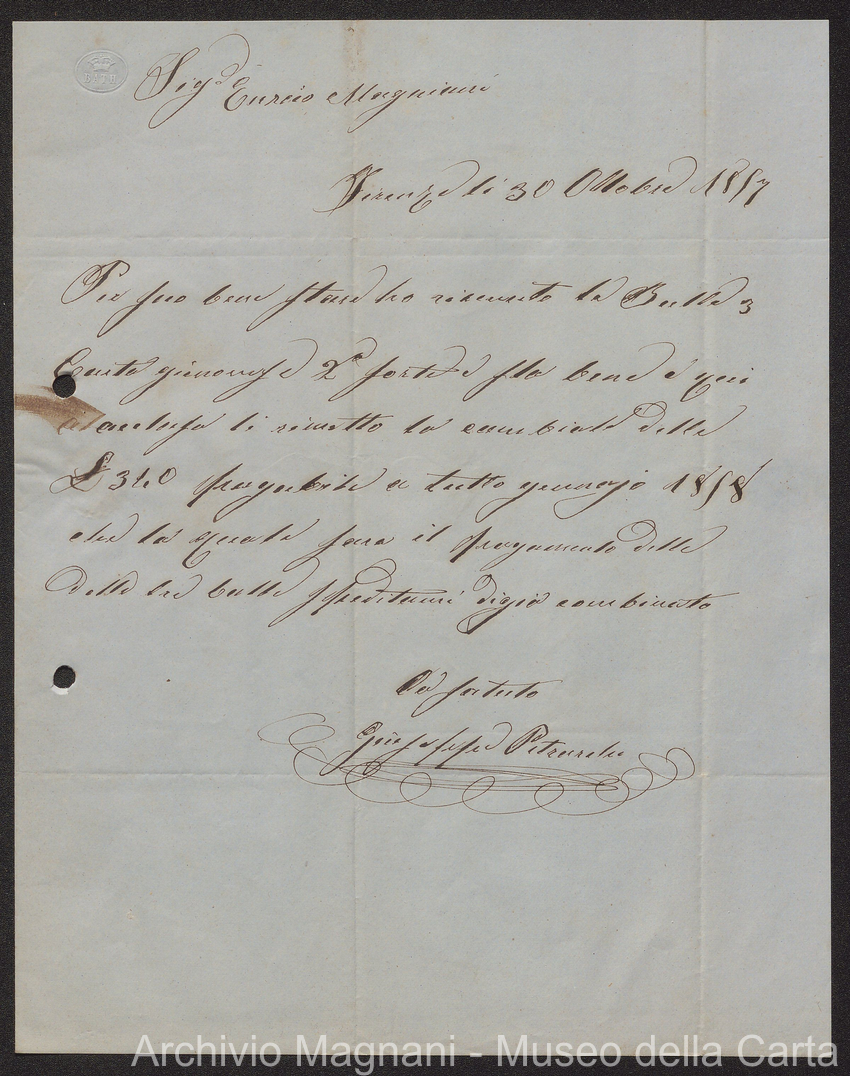 BATH
Sig.re Enrico Magniani
Firenze li 30 Ottobre 1857
Per suo bene stare ho ricevuto le Balle 3
Carta genovese 2a sorte e sta bene e qui
acclusa li rimetto la cambiale delle
£ 340 pagabile a tutto genajo 1858
che la quale sara il pagamento delle
dette tre balle speditemi digia combinato
La saluto
Giuseppe
Archivio Magnani - Museo della Carta